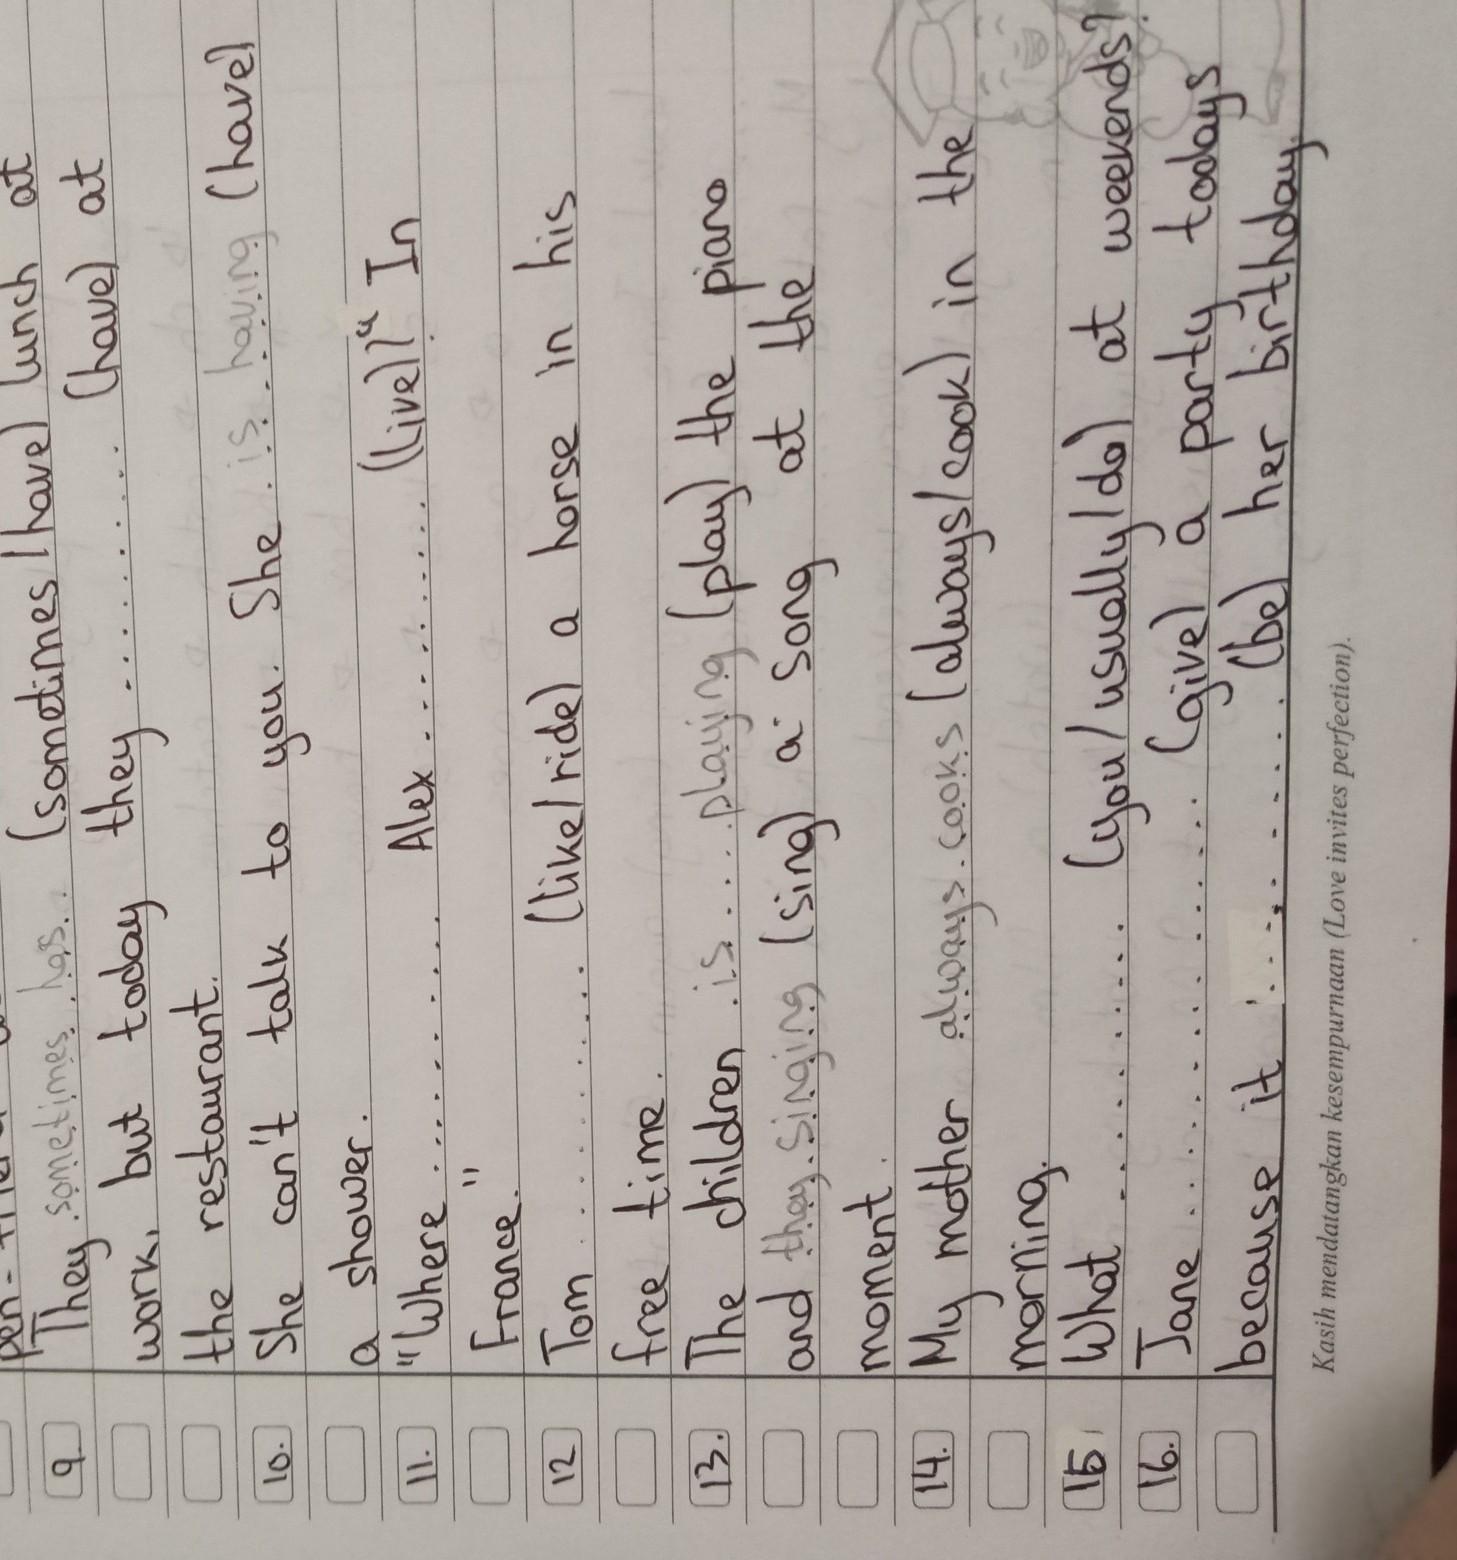 9. They sometimes has.. (sometimes/have) lunch at
work, but today they ............ (have) at
the restaurant.
10. She can't talk to you. She is having (have)
a shower.
11. "Where ............ Alex ............ (live)?" In
France."
12 Tom ............ (like/ride) a horse in his
free time.
13. The children is.... playing (play) the piano
and they singing (sing) a song at the
moment.
14. My mother always cooks (always/cook) in the
morning.
15. What ............ (you/usually/do) at weekends?
16. Jane ............ (give) a party todays
because it ............ (be) her birthday.
Kasih mendatangkan kesempurnaan (Love invites perfection).